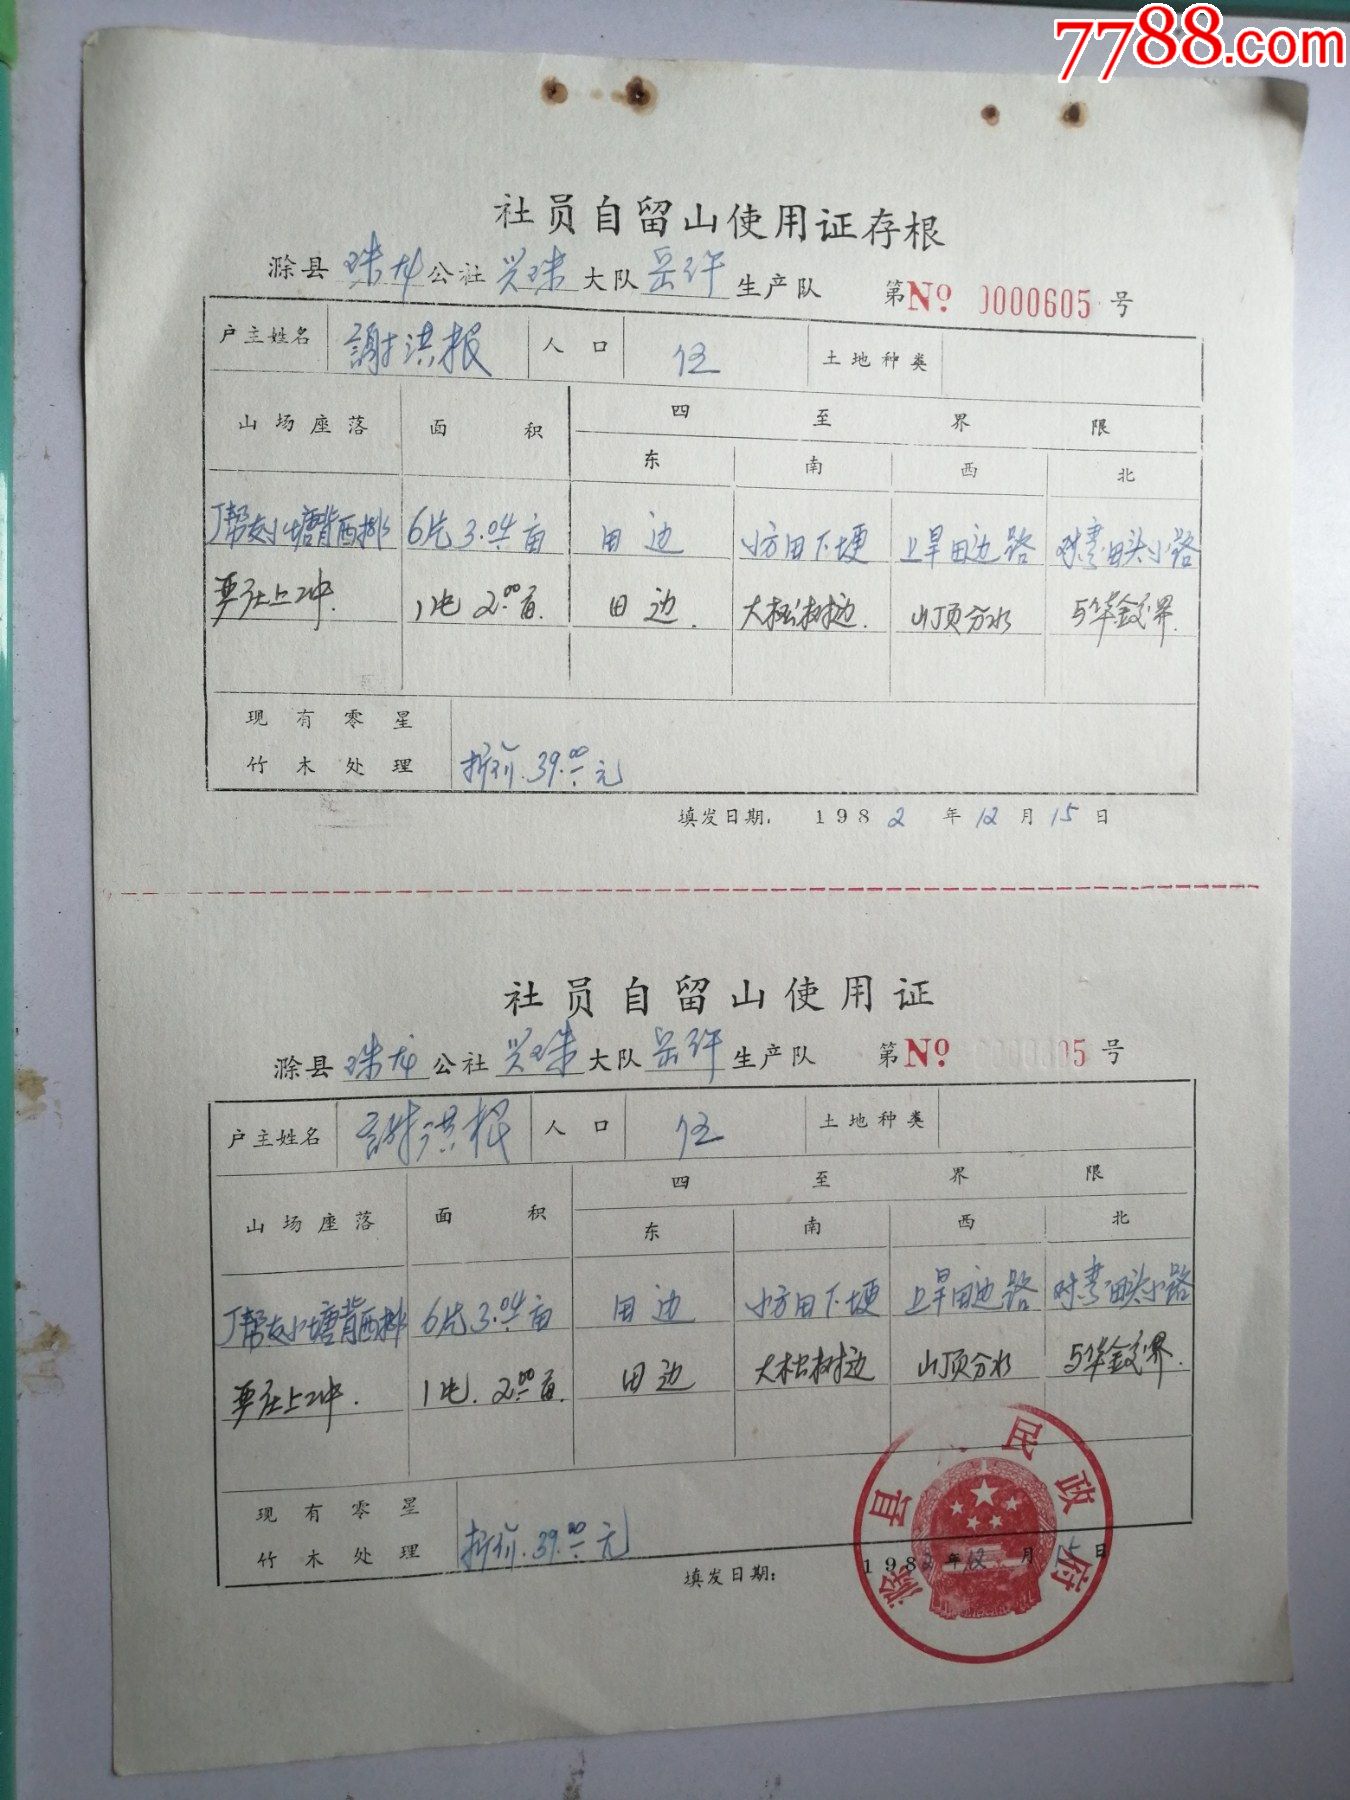 7788.com存
社员自留山使用证存根
滁县 珠龙 公社 兴珠 大队 岳许 生产队 第No 0000605 号
户主姓名 謝洪根 人口 伍 土地种类
山场座落 面积 四至界限
东 南 西 北
小塘背西排 6片 3.04亩 田边 小方田下埂 上旱田边路 对湾田头小路
上冲. 1片 2.00亩. 田边. 大松树边. 山顶分水 与华金交界.
现有零星
竹木处理 折价.39.00元
填发日期: 1982年12月15日
社员自留山使用证
滁县 珠龙 公社 兴珠 大队 岳许 生产队 第No 0000605 号
户主姓名 謝洪根 人口 伍 土地种类
山场座落 面积 四至界限
东 南 西 北
小塘背西排 6片 3.04亩 田边 小方田下埂 上旱田边路 对湾田头小路
上冲. 1片. 2.00亩. 田边 大松树边 山顶分水 与华金交界.
现有零星
竹木处理 折价.39.00元
填发日期: 1982年12月15日
滁县人民政府